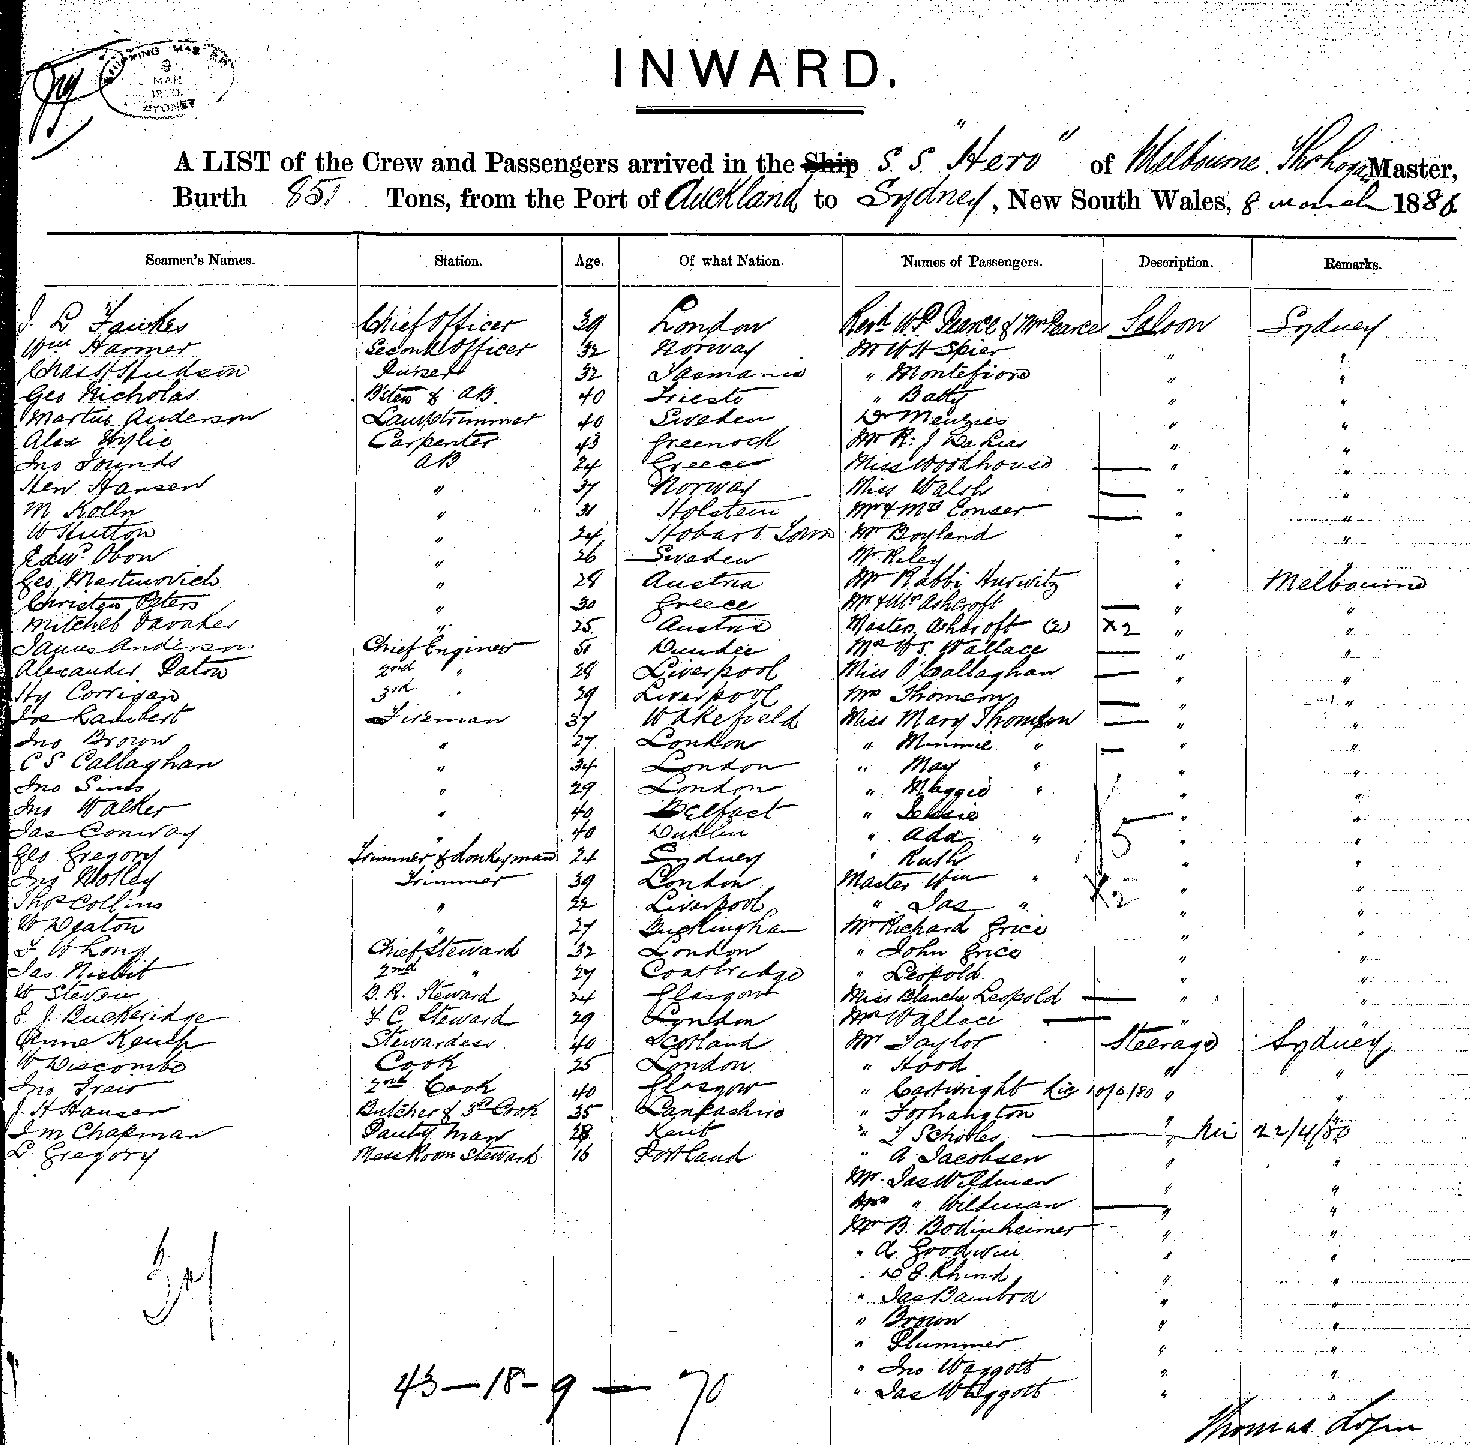 SHIPPING MASTER
9
MAR
SYDNEY
INWARD.
A LIST of the Crew and Passengers arrived in the Ship S.S. "Hero" of Melbourne, Master,
Burth 851 Tons, from the Port of Auckland to Sydney, New South Wales, 8 March 1880
Seamen's Names. Station. Age. Of what Nation. Names of Passengers. Description. Remarks.
J. L Fawkes Chief Officer 39 London W P Pearce & Mrs Pearce Saloon Sydney
Wm Harmer Second Officer 32 Norway Mr W H Spier " "
Chas H Hudson Purser 32 Tasmania " Montefiore " "
Geo Nicholas & AB. 40 Trieste " Batty " "
Martin Anderson Lamptrimmer 40 Sweden Dr Menzies " "
Alex Wylie Carpenter 43 Greenock Mr R. J " "
Jno Founds AB 24 Greece Miss Woodhouse " "
Hen Hansen " 37 Norway Miss Walsh " "
M Kolln " 31 Holstein Mr & Mrs Conser " "
W Hutton " 24 Hobart Town Mr Boyland " "
Obon " 26 Sweden Mr Riley
Geo Martinovich " 28 Austria Mr Rabbi Hurwitz " Melbourne
Christen Peters " 30 Greece Mr & Mrs Ashcroft " "
Mitchel " 25 Austria Master Ashcroft (2) x2 " "
James Anderson Chief Engineer 51 Dundee Wallace " "
Alexander Paton 2nd " 28 Liverpool Miss O'Callaghan " "
Hy Corrigan 3rd " 29 Liverpool Mrs Thomson " "
Jos Lambert Fireman 37 Wakefield Miss Mary Thomson " "
Jno Brown " 27 London " Minnie " " "
C S Callaghan " 34 London " May " " "
Jno Sims " 29 London " Maggie " " "
Jno Walker " 40 Belfast " Jessie " "
Jas Conway " 40 Dublin " Ada " 5 " "
Geo Gregory Trimmer & Donkeyman 24 Sydney " Ruth " "
Jno Trimmer 39 London Master Wm " x2 " "
Thos Collins " 22 Liverpool " Jas " " "
W Deaton " 27 Buckingham Mr Richard Grice " "
F W Long Chief Steward 32 London " John Grice " "
Jas. Nisbit 2nd " 27 Coatbridge " Leopold " "
W Steven B. R. Steward 24 Glasgow Miss Blanche Leopold " "
E J. Buckeridge F C Steward 29 London Mrs Wallace "
Anne Keush Stewardess 40 Scotland Mr Taylor Steerage Sydney
W Discombe Cook 25 London " Hood " "
Jno 2nd Cook 40 Glasgow " Cartwright 10/6/80 "
J. H Hansen Butcher & 3rd Cook 35 Lancashire " Forhangton " "
J M Chapman Pantry Man 28 Kent " Scholes " 22/4/80
L Gregory Mess Room Steward 16 Portland " A Jacobsen " "
Mr Jas Wildman " "
Mrs " Wildman " "
Mr B. Bodinheimer " "
" A. Goodwin " "
" Rhind " "
" Jas Bambra " "
" Brown " "
" Plummer " "
" Jno Waggott " "
" Jas Waggott " "
37
43 — 18 - 9 — 70
Thomas Logan